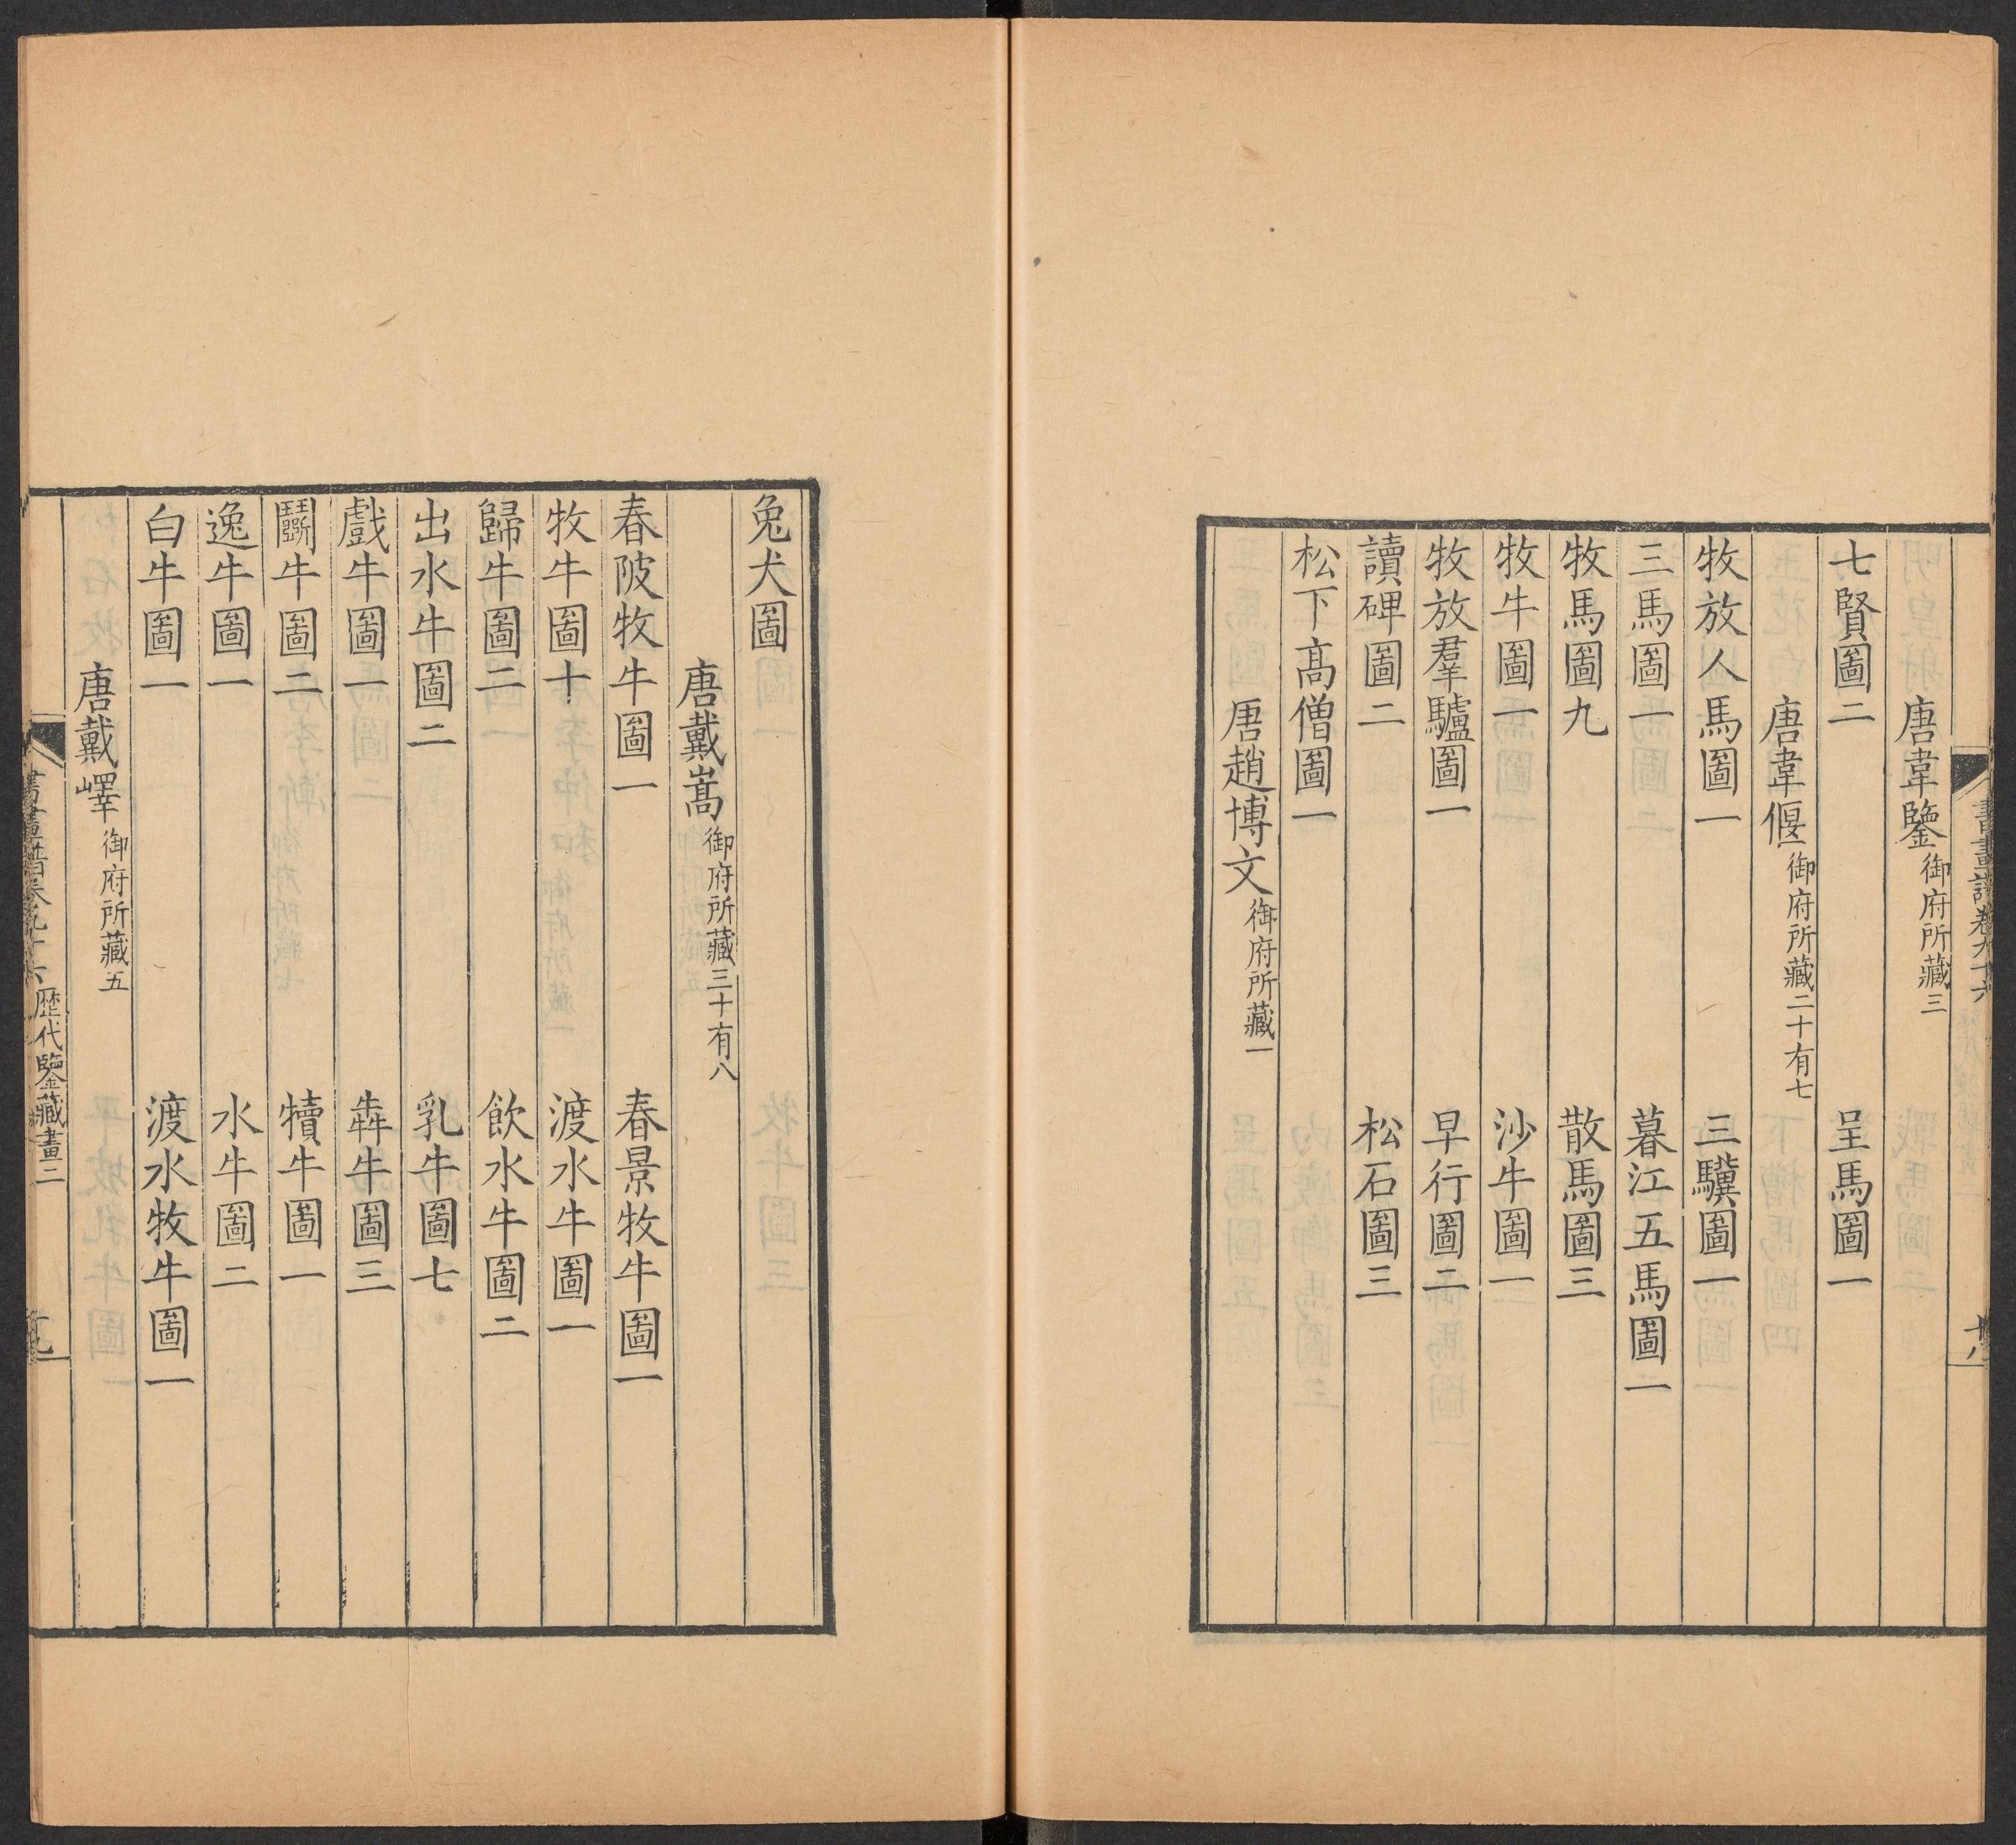 書畫譜卷九十六
十八
唐韋鑒御府所藏三
七賢圖二 呈馬圖一
唐韋偃御府所藏二十有七
牧放人馬圖一 三驥圖一
三馬圖一 暮江五馬圖一
牧馬圖九 散馬圖三
牧牛圖一 沙牛圖一
牧放羣驢圖一 早行圖二
讀碑圖二 松石圖三
松下高僧圖一
唐趙博文御府所藏一
兔犬圖
唐戴嵩御府所藏三十有八
春陂牧牛圖一 春景牧牛圖一
牧牛圖十 渡水牛圖一
歸牛圖二 飲水牛圖二
出水牛圖二 乳牛圖七
戲牛圖一 犇牛圖三
鬭牛圖二 犢牛圖一
逸牛圖一 水牛圖二
白牛圖一 渡水牧牛圖一
唐戴嶧御府所藏五
書畫譜卷九十六 歷代鑒藏畫二